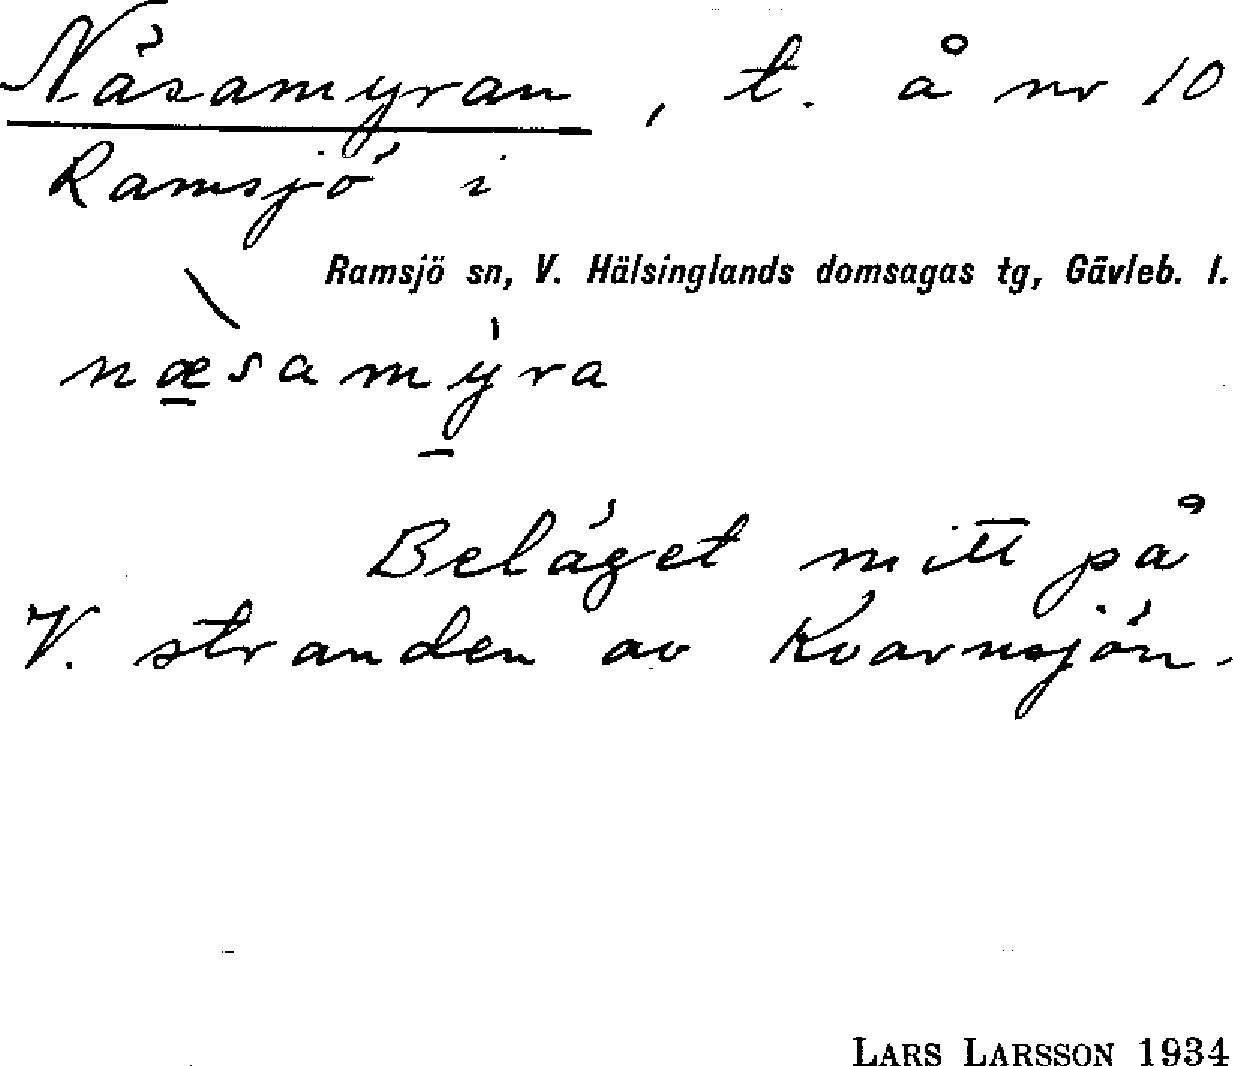 Näsamyran, t. å nr 10
Ramsjö i
Ramsjö sn, V. Hälsinglands domsagas tg, Gävleb. l.
næ̠̀samý̠ra
Beläget mitt på
V. stranden av Kvarnsjön.
LARS LARSSON 1934